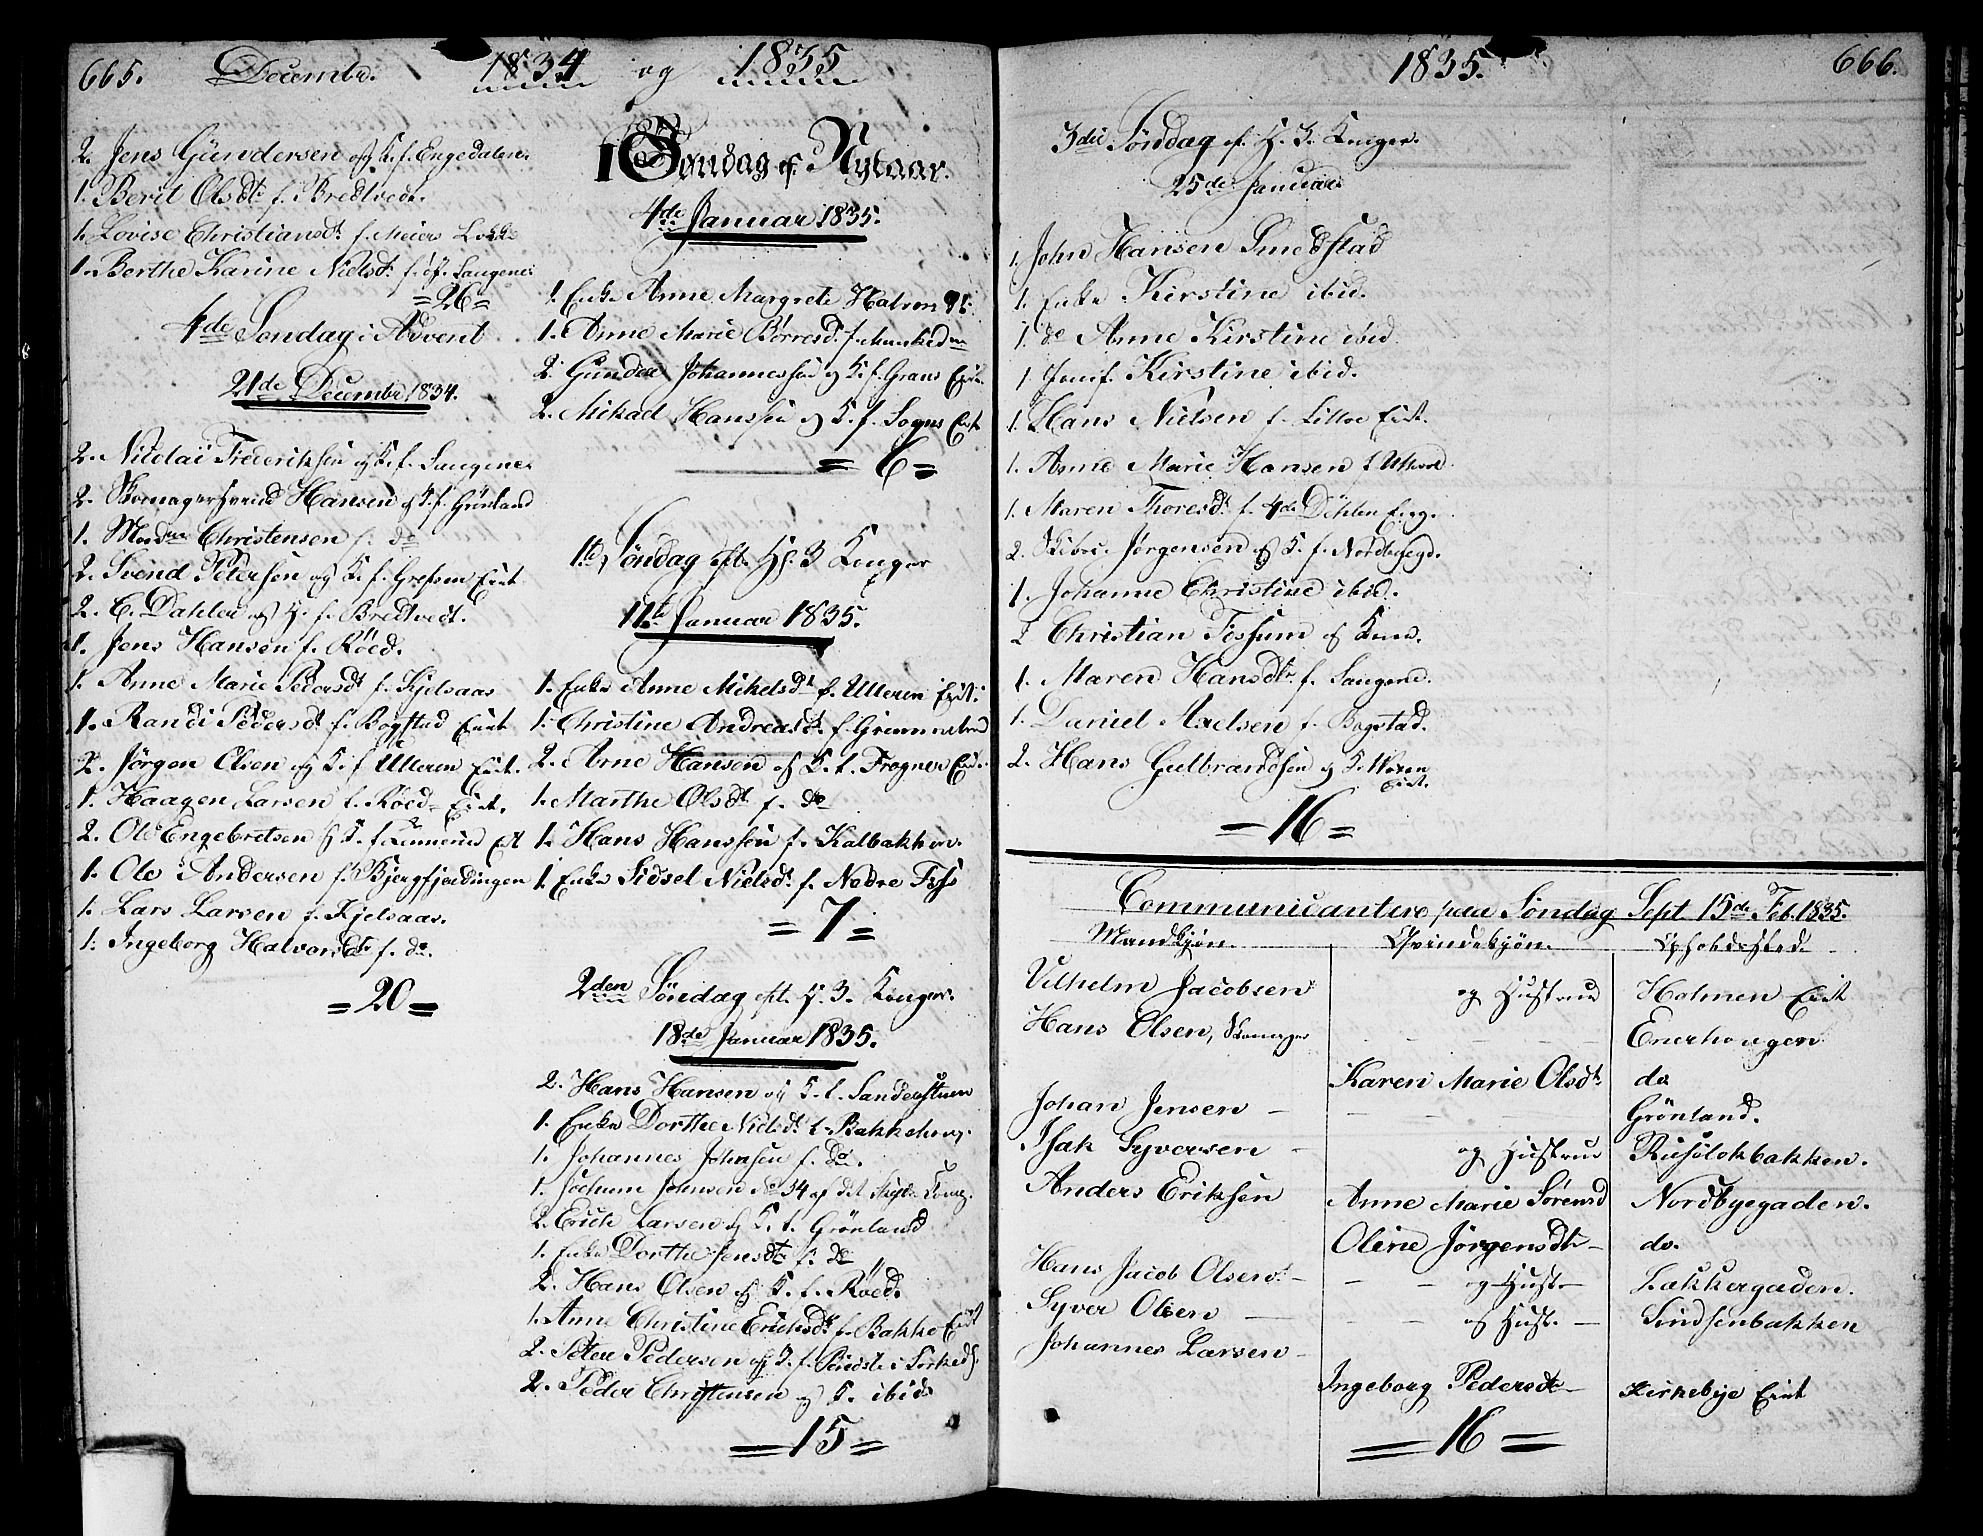 665. Decembr. 1834 og 1835
2. Jens Gundersen og K. f. Engedalen.
1. Berit Olsdt. f. Bredtvedt.
1. Lovise Christiansdt. f. Meiers Løkke
1. Berthe Karine Nielsdt. f. Langene
=26=
4de Søndag i Advent
21de Decembr 1834.
2. Nicolai Frederiksen og K. f. Langene.
2. Skomagersvend Hansen og K. f. Grønland
1. Madme Christensen f. do
2. Svend Pedersen og K. f. Grefsen Eiet
2. C. Dahler og H. f. Bredtvedt.
1. Jens Hansen f. Röed.
1. Anne Marie Pedersdt f. Kjelsaas
1. Randi Pedersdt f. Bogstad Eiet
2. Jörgen Olsen og K. f. Ulleren Eiet.
1. Haagen Larsen f. Röed Eiet.
2. Ole Engebretsen og K. f. Linnerud Eit
1. Ole Andersen f. Bjergfjerdingen
1. Lars Larsen f. Kjelsaas.
1. Ingeborg Halvorsdt. f. do.
=20=
1 Søndag ef. Nytaar.
4de Januar 1835.
1. Enke Anne Margrete Halvorsdt.
1. Anne Marie Börresdt. f. Munkedm
2. Gunder Johannessen og K. f. Grans Eiet
2. Mikael Hanssen og K. f. Sogns Eiet
=6=
1te Söndag eft. H. 3 Konger
11te Januar 1835.
1. Enke Anne Mikelsdt f. Ulleren Eiet.
1. Christine Andreasdt. f. Grønnebrud
2. Arne Hansen og K. f. Frogner Eie.
1. Marthe Olsdt f. do
1. Hans Hanssen f. Kalbakken.
1. Enke Sidsel Nielsdt. f. Nedre Foss
=7=
2den Söndag eft. H. 3. Konger.
18de Januar 1835.
2. Hans Hansen og K. f. Sanderstuen
1. Enke Dorthe Nielsdt. f. Bakkehoug.
1. Johannes Johnsen f. do.
1. Jochum Johnsen No 34 af det Comp.
2. Erich Larsen og K. f. Grönland
1. Enke Dorthe Jensdt. f. do
2. Hans Olsen og K. f. Röed.
1. Anne Christine Erichsdt f. Bakke Eiet
2. Peter Pedersen og K. f. i Sörkeds.
2. Peder Christensen og K. ibid.
=15=
1835. 666.
3die Söndag ef. H. 3. Konger.
25de Januar
1. John Hansen Smedstad
1. Enke Kirstine ibid.
1. do Anne Kirstine ibid.
1. Jomf. Kirstine ibid.
1. Hans Nielsen f. Lilloe Eiet.
1. Anne Marie Hansen f.
1. Maren Thoresdt. f. 4de Döhlen Eieg.
2. Skibr. Jørgensen og K. f. Nordbyegd.
1. Johanne Christine ibid.
2 Christian Fossum og Kone.
1. Maren Hansdtr f. Langene.
1. Daniel Axelsen f. Bogstad.
2. Hans Gulbrandsen og K. Holmen
Eiet.
=16=
Communicantere paa Søndag Sept. 15de Feb. 1835.
Mandkjön. Qvindekjön. Opholdssted.
Vilhelm Jacobsen og Hustrue Holmen Eiet
Hans Olsen, Skomager Enerhougen
Karen Marie Olsdt. do
Johan Jensen Grönland.
Isak Syversen og Hustrue Rusölökbakken.
Anders Eriksen Anne Marie Sörensd Nordbyegaden.
Oline Jörgensdtr do.
Hans Jacob Olsen og Hust. Lakkergaden.
Syver Olsen og Hust. Sindsenbakken
Johannes Larsen
Ingeborg Pedersdt Kirkebye Eiet
=16=